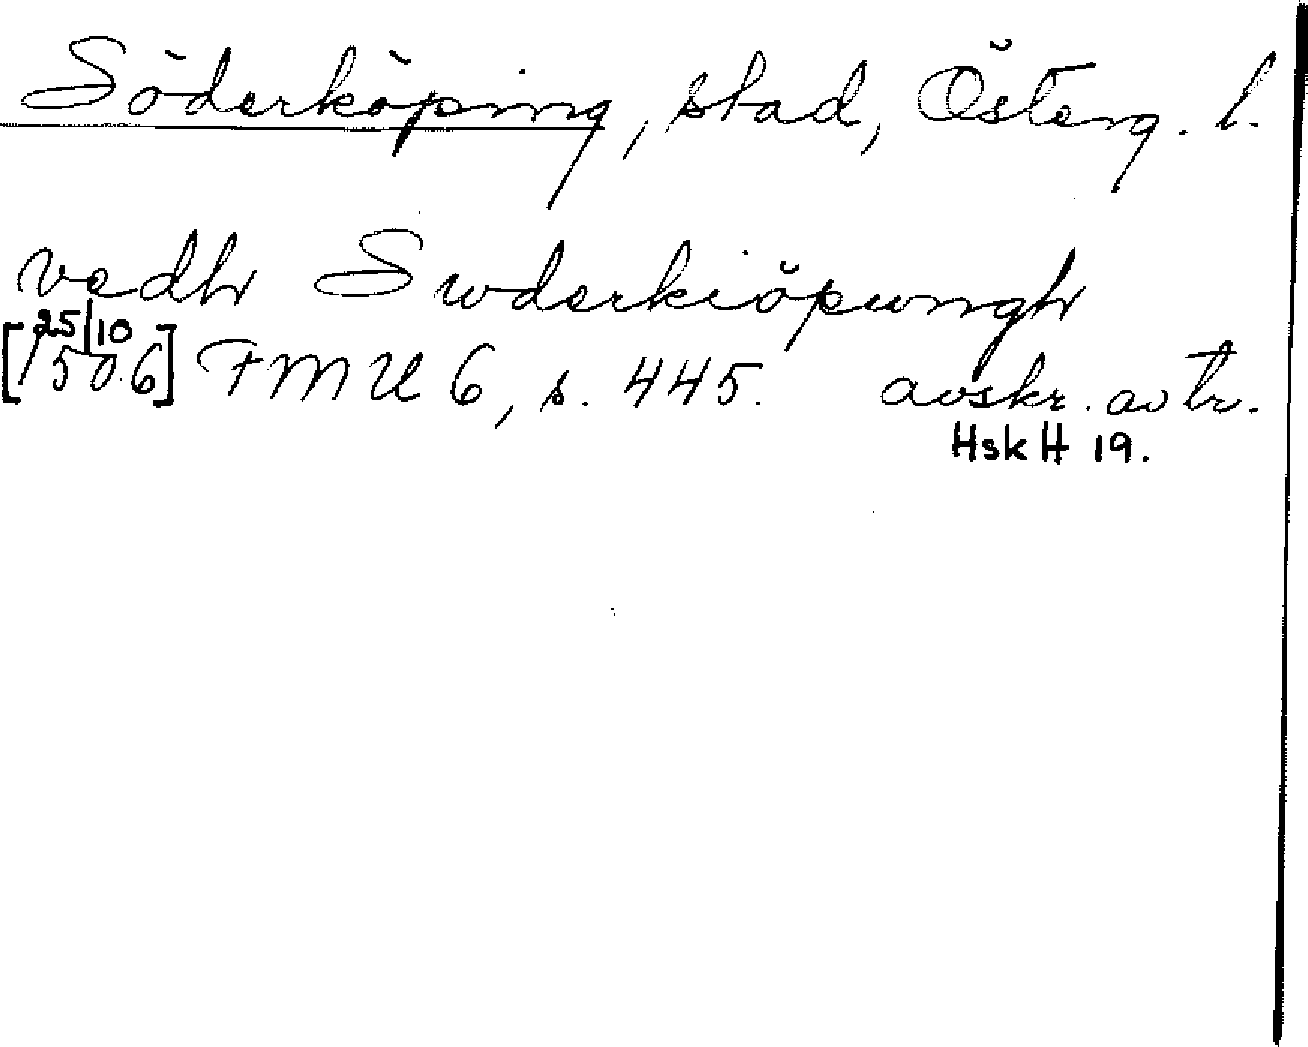 Söderköping, stad, Österg. l.
vedh Swderkiöpungh
[25/10 1506] FMU 6, s. 445. avskr. av tr.
Hsk H 19.